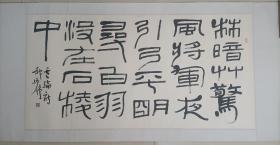 林暗艸驚
風將軍夜
引弓平明
尋白羽
沒在石棱
中
盧綸詩